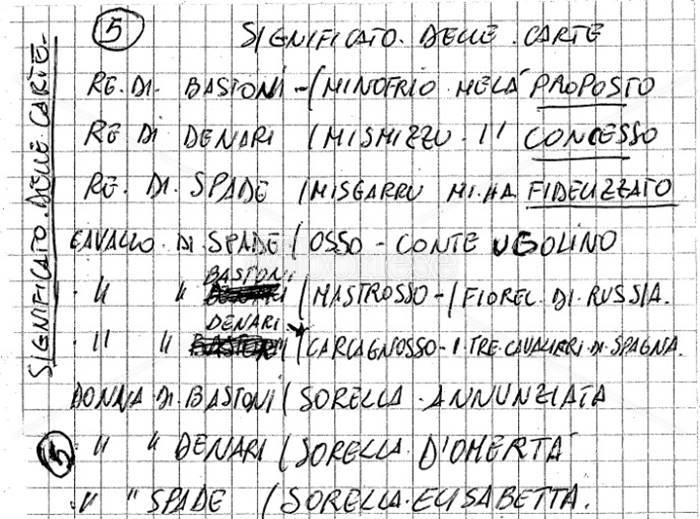 5 SIGNIFICATO. DELLE. CARTE
SIGNIFICATO. DELLE. CARTE.
RE. DI. BASTONI - (MINOFRIO MELA' PROPOSTO
RE DI DENARI (MISMIZZU. 11 CONCESSO
RE. DI. SPADE (MISGARRU MI. HA. FIDELIZZATO
CAVALLO. DI. SPADE ( OSSO - CONTE UGOLINO
" " BASTONI (MASTROSSO - ( FIOREL. DI. RUSSIA.
" " DENARI (CARCAGNOSSO - I. TRE. CAVALIERI. DI. SPAGNA.
DONNA DI. BASTONI ( SORELLA. ANNUNZIATA
5 " " DENARI ( SORELLA. D'OMERTA'
" " SPADE ( SORELLA. ELISABETTA.